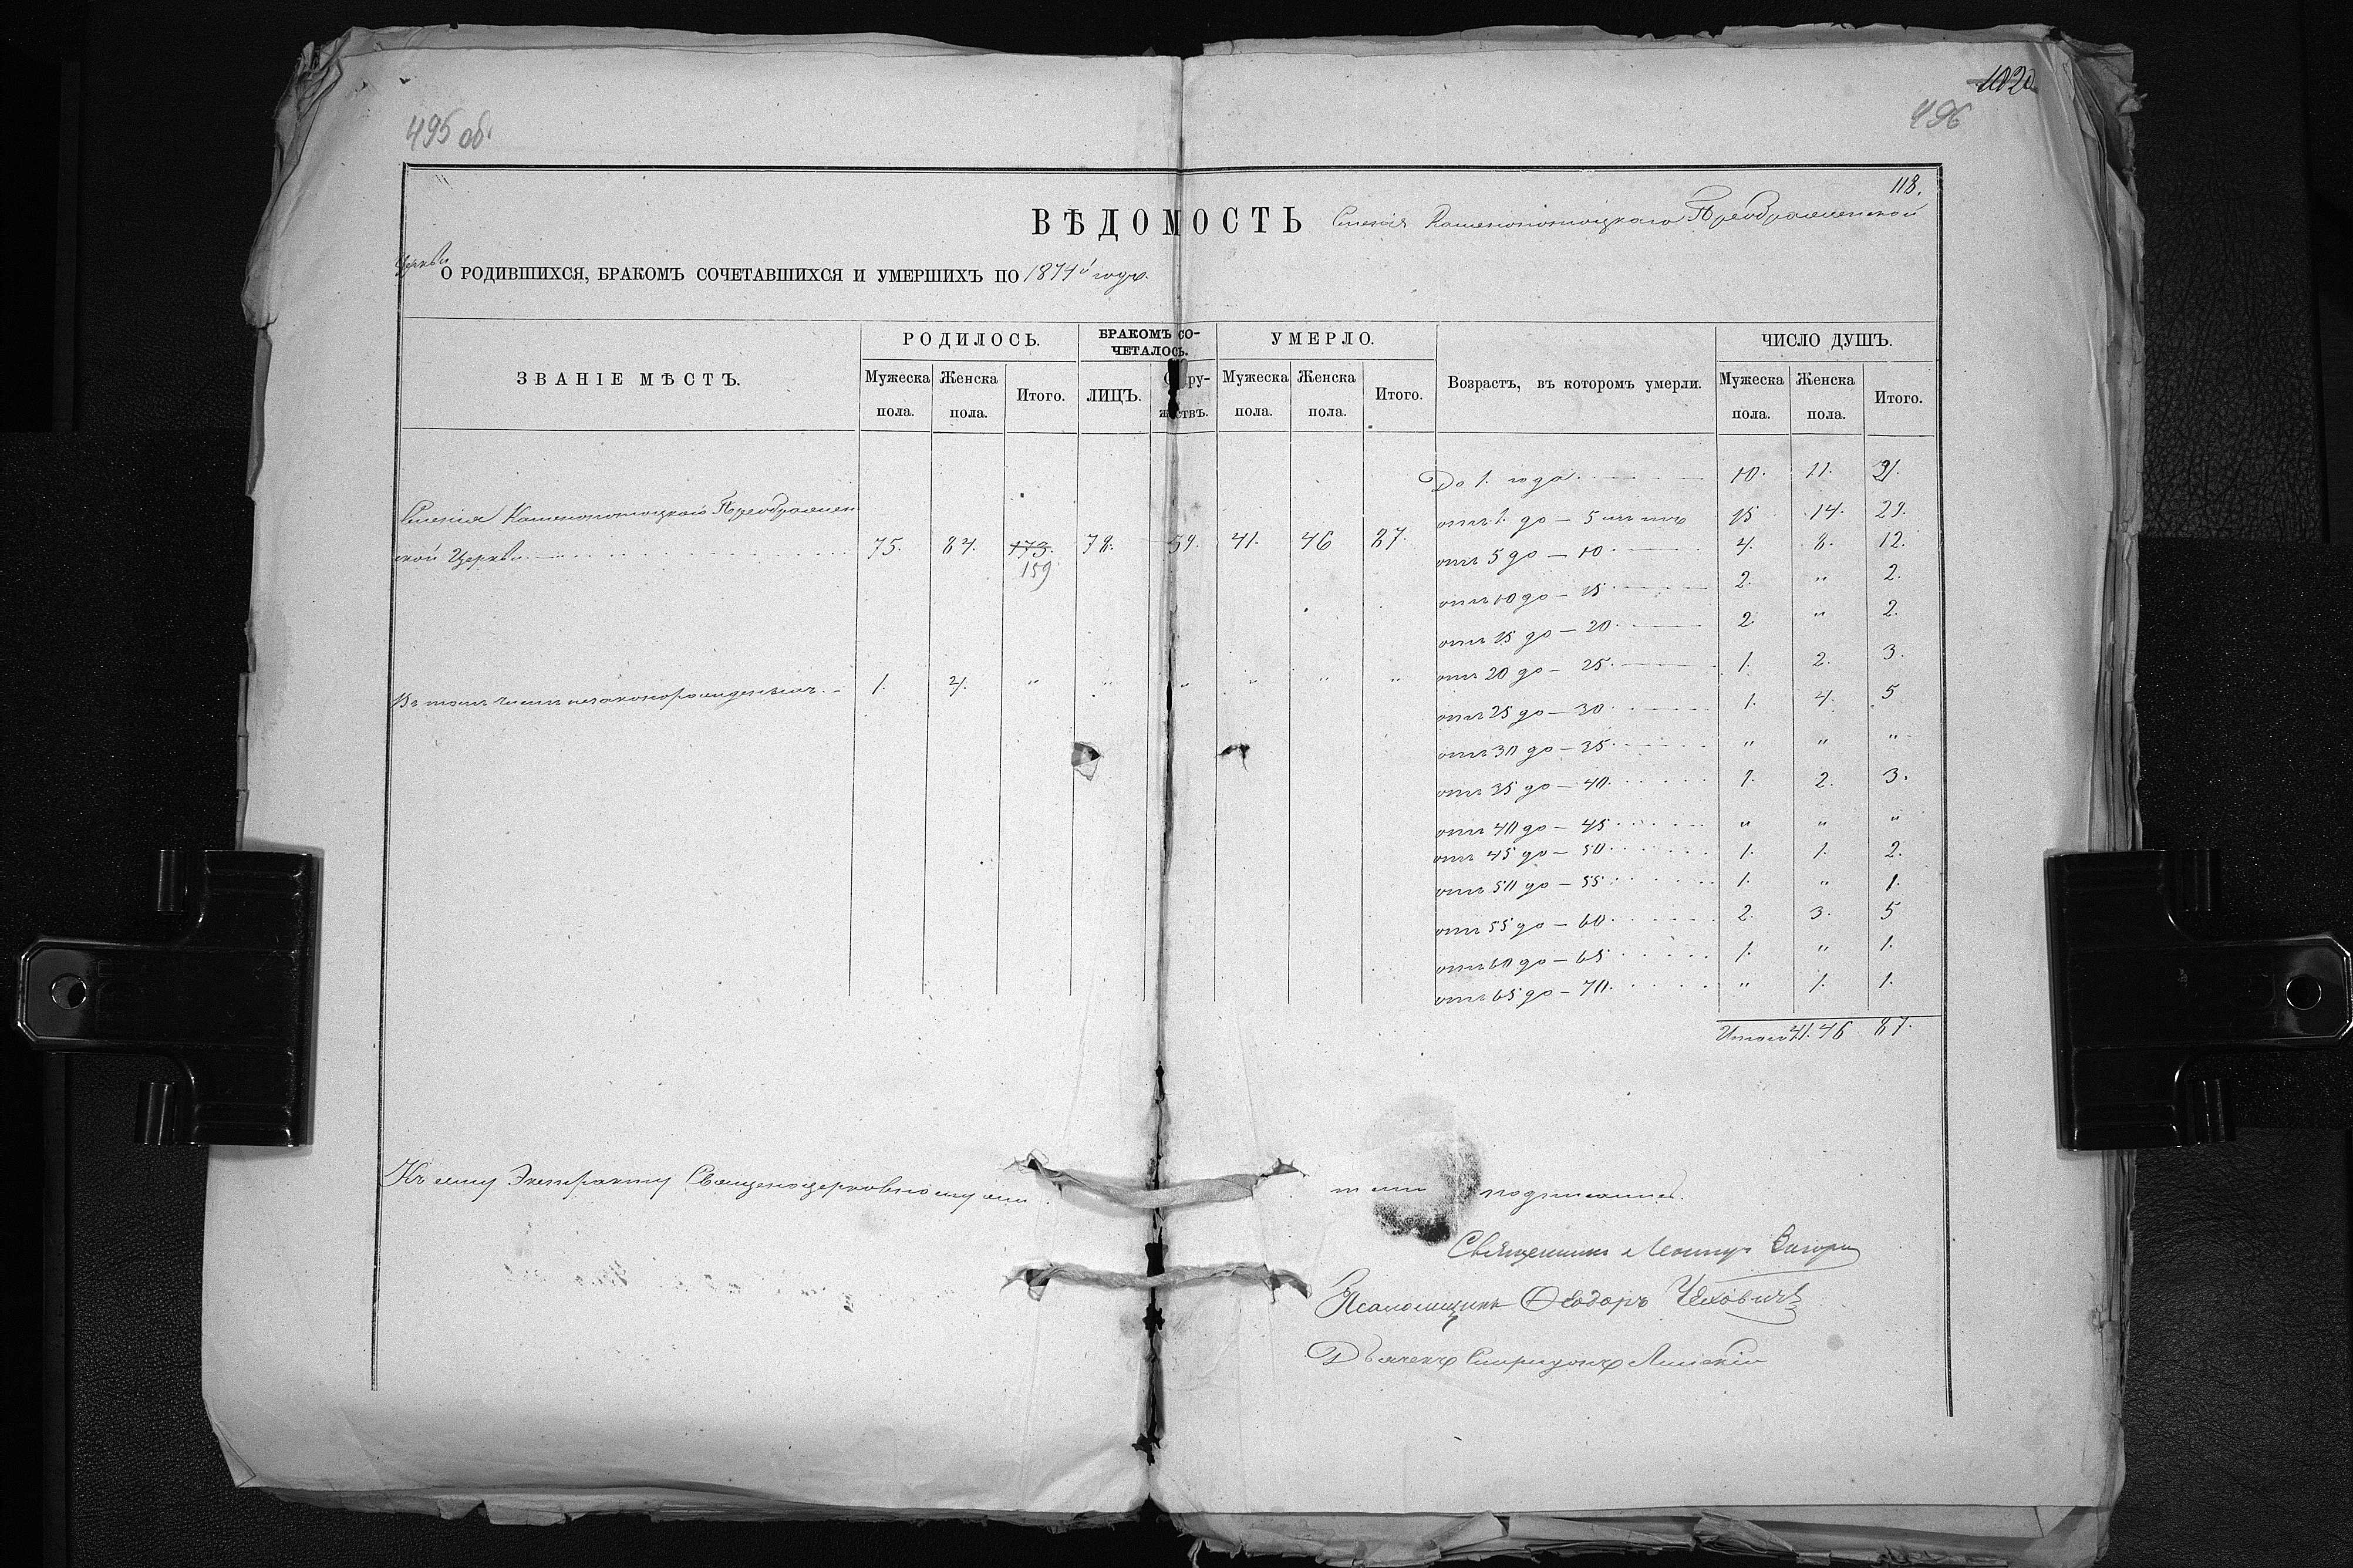 1020
495 об.
496
118.
ВѢДОМОСТЬ Каменопотоцкаго Преображенской
Церкви
О РОДИВШИХСЯ, БРАКОМЪ СОЧЕТАВШИХСЯ И УМЕРШИХЪ ПО 1874й годъ.
ЗВАНІЕ МѢСТЪ. РОДИЛОСЬ. БРАКОМЪ СО-ЧЕТАЛОСЬ. УМЕРЛО. Возрастъ, въ которомъ умерли. ЧИСЛО ДУШЪ.
Мужеска пола. Женска пола. Итого. ЛИЦЪ. Мужеска пола. Женска пола. Итого. Мужеска пола. Женска пола. Итого.
До 1. года 10. 11. 21.
Каменопотоцкаго Преображен
отъ 1. до — 5 15 14. 29.
ской Церкви 75. 84. 173. 78. 39. 41. 46 87.
159
отъ 5 до — 10 4. 8. 12.
отъ 10 до — 15 2. " 2.
отъ 15 до — 20 2. " 2.
отъ 20 до — 25 1. 2. 3.
Въ томъ числѣ незаконорожденныхъ 1. 4. " " " " " "
отъ 25 до — 30 1. 4. 5
отъ 30 до — 35 " " "
отъ 35 до — 40 1. 2. 3.
отъ 40 до — 45 " " "
отъ 45 до — 50 1. 1. 2.
отъ 50 до — 55 1. " 1.
отъ 55 до — 60 2. 3. 5
отъ 60 до — 65 1. " 1.
отъ 65 до — 70 " 1. 1.
Итого 41. 46 87.
Къ сему Экстракту
Священникъ
Псаломщикъ Ѳеодоръ Чеховичъ
Дьячекъ Спиридонъ